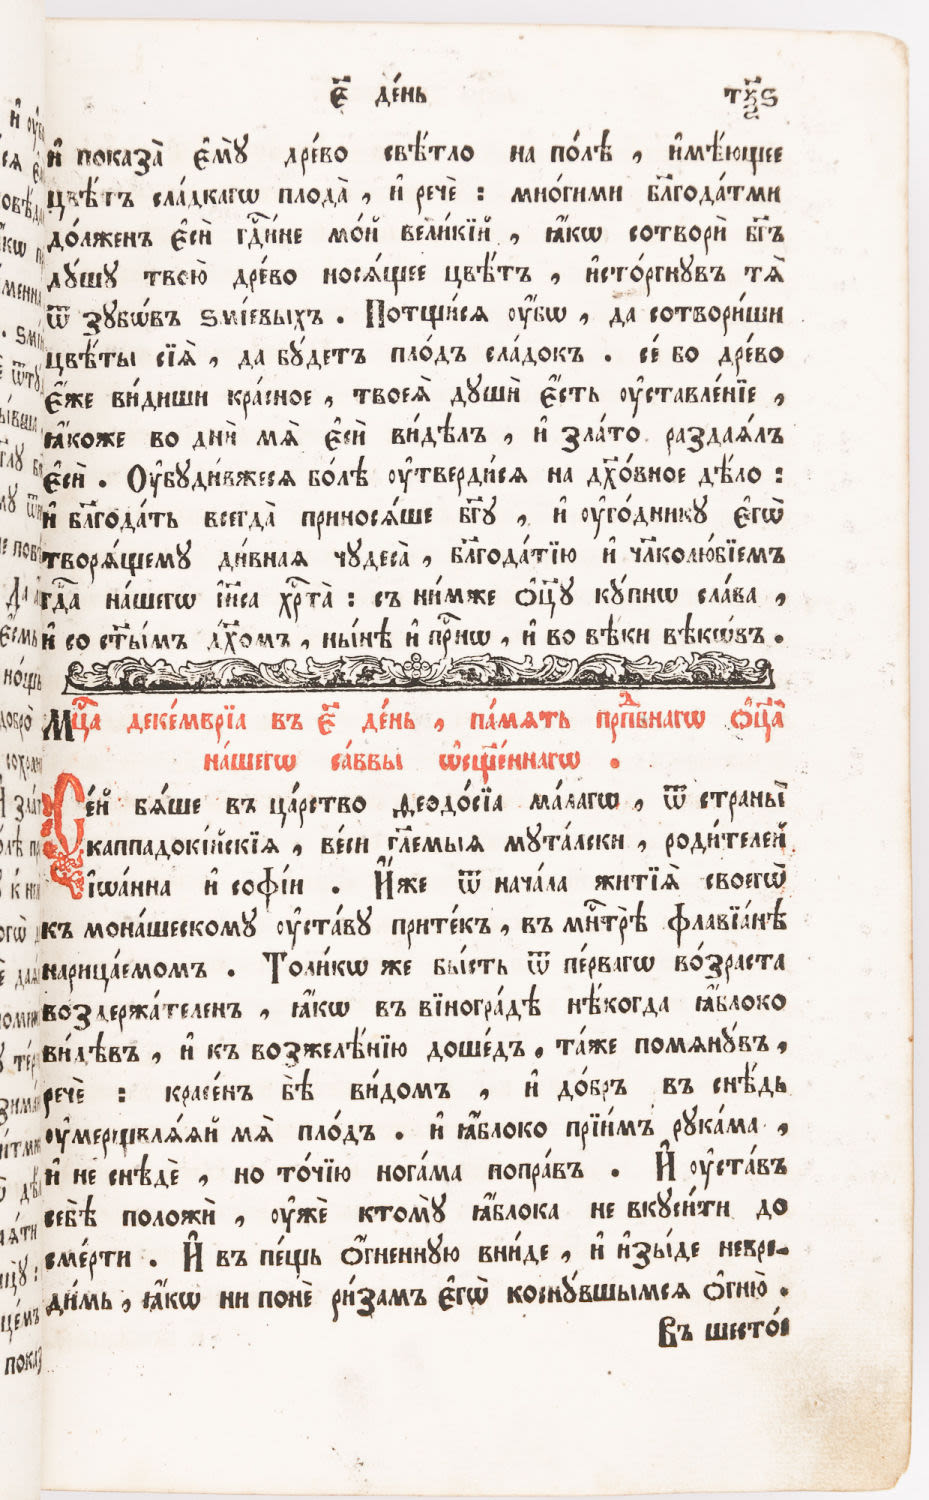 є҃ де́нь тѯ҃ѕ
и҆ показа̀ є҆мꙋ̀ дре́во свѣ́тло на по́лѣ , и҆мѣ́ющее
цвѣ́тъ сла́дкагѡ плода̀ , и҆ речѐ : мно́гими бл҃года́тми
до́лженъ є҆сѝ гдⷭ҇и́не мо́й вели́кїй , ꙗ҆́кѡ сотворѝ бг҃ъ
дꙋ́шꙋ твою̀ дре́во нося́щее цвѣ́тъ , и҆сто́ргнꙋвъ тѧ̀
ѿ зꙋбѡ́въ ѕмі́евыхъ . Потщи́ся ᲂу҆́бѡ , да сотвори́ши
цвѣ́ты сїѧ̀ , да бꙋ́детъ пло́дъ сла́докъ . се́ бо дре́во
є҆́же ви́диши кра́сное , твоеѧ̀ дꙋшѝ є҆́сть ᲂу҆ставле́нїе ,
ꙗ҆́коже во днѝ мѧ̀ є҆сѝ ви́дѣлъ , и҆ зла́то раздаѧ́лъ
є҆сѝ . Оу҆бꙋди́вжеся бо́лѣ ᲂу҆тверди́ся на дх҃о́вное дѣ́ло :
и҆ бл҃года́ть всегда̀ приносѧ́ше бг҃ꙋ , и҆ ᲂу҆го́дникꙋ є҆гѡ̀
творѧ́щемꙋ ди́вная чꙋдеса̀ , бл҃года́тїю и҆ чл҃колю́бїемъ
гдⷭ҇а на́шегѡ і҆и҃са хрⷭ҇та̀ : съ ни́мже ѻ҆ц҃ꙋ̀ кꙋ́пнѡ сла́ва ,
и҆ со ст҃ы́мъ дх҃омъ , ны́нѣ и҆ при́снѡ , и҆ во вѣ́ки вѣкѡ́въ .
Мцⷭ҇а деке́мврїа въ є҃ де́нь , па́мять прпⷣбнагѡ ѻ҆ц҃а̀
на́шегѡ са́ввы ѡ҆сщ҃е́ннагѡ .
Се́й бѧ́ше въ ца́рство ѳеодо́сїа ма́лагѡ , ѿ страны̀
каппадокі́йскїя , ве́си гл҃емыя мꙋта́лски , роди́телей
і҆ѡа́нна и҆ софі́и . И҆́же ѿ нача́ла житїѧ̀ своегѡ̀
къ мона́шескомꙋ ᲂу҆ста́вꙋ прите́къ , въ мнⷭ҇трѣ̀ флавїа́нѣ
нарица́емомъ . Толи́кѡ же бы́сть ѿ пе́рвагѡ во́зраста
воздержа́теленъ , ꙗ҆́кѡ въ вїногра́дѣ нѣ́когда ꙗ҆́блоко
ви́дѣвъ , и҆ къ возжелѣ́нїю доше́дъ . та́же помянꙋ́въ ,
речѐ : красе́нъ бѣ̀ ви́домъ , и҆ до́бръ въ снѣ́дь
ᲂу҆мерщвлѧ́яй мѧ̀ пло́дъ . и҆ ꙗ҆́блоко прїи́мъ рꙋка́ма ,
и҆ не снѣдѐ , но то́чїю нога́ма попра́въ . И҆ ᲂу҆ста́въ
себѣ̀ положѝ , ᲂу҆жѐ ктомꙋ̀ ꙗ҆́блока не вкꙋси́ти до
сме́рти . И҆ въ пе́щь ѻ҆́гненнꙋю вни́де , и҆ и҆зы́де невре-
ди́мь , ꙗ҆́кѡ ни понѐ ри́замъ є҆гѡ̀ коснꙋ́вшымся ѻ҆гню̀ .
Въ шесто́е